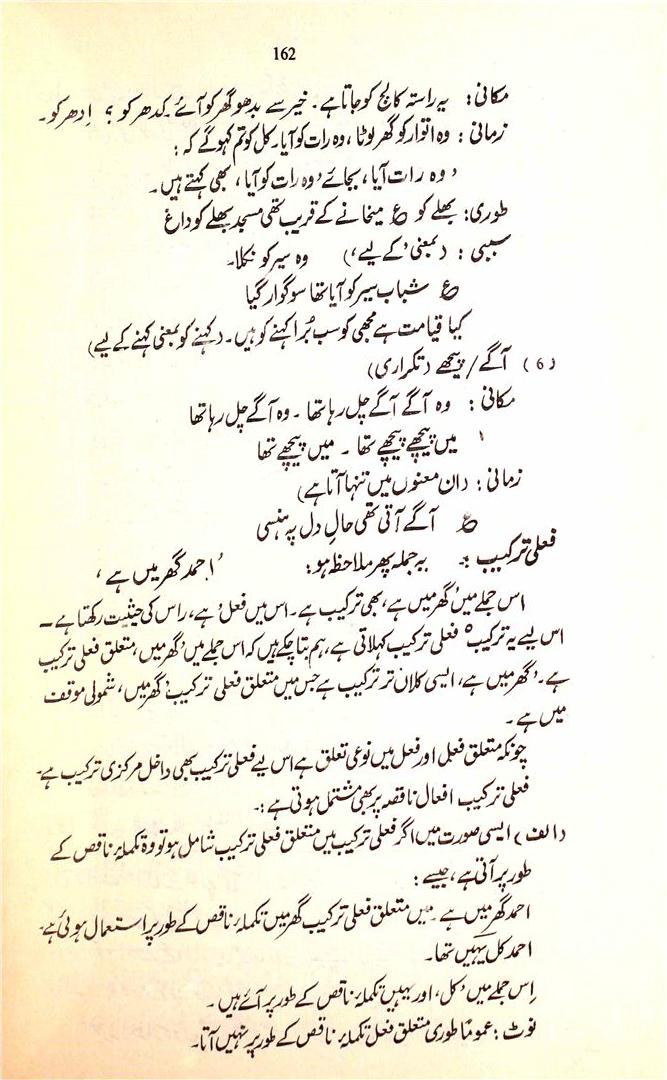 162
مکانی: یہ راستہ کالج کو جاتا ہے۔ خیر سے بدھو گھر کو آئے۔ کدھر کو؟ اِدھر کو۔
زمانی: وہ اتوار کو گھر لوٹا، وہ رات کو آیا۔ کل کو تم کہو گے کہ:
'وہ رات آیا، بجائے 'وہ رات کو آیا، بھی کہتے ہیں۔
طوری: بھلے کو ع میخانے کے قریب تھی مسجد بھلے کو داغ
سببی: (بمعنی 'کے لیے') وہ سیر کو نکلا۔
ع شباب سیر کو آیا تھا سوگوار گیا
کیا قیامت ہے مجھی کو سب بُرا کہنے کو ہیں۔ (کہنے کو بمعنی کہنے کے لیے)
(6) آگے/پیچھے (تکراری)
مکانی: وہ آگے آگے چل رہا تھا۔ وہ آگے چل رہا تھا
میں پیچھے پیچھے تھا۔ میں پیچھے تھا
زمانی: (ان معنوں میں تنہا آتا ہے)
ع آگے آتی تھی حالِ دل پہ ہنسی
فعلی ترکیب:۔ یہ جملہ پھر ملاحظہ ہو: 'احمد گھر میں ہے،
اس جملے میں 'گھر میں ہے، بھی ترکیب ہے۔ اس میں فعل 'ہے، راس کی حیثیت رکھتا ہے۔
اس لیے یہ ترکیب فعلی ترکیب کہلاتی ہے، ہم بتا چکے ہیں کہ اس جملے میں 'گھر میں، متعلق فعلی ترکیب
ہے۔ 'گھر میں ہے، ایسی کلاں تر ترکیب ہے جس میں متعلق فعلی ترکیب 'گھر میں، شمولی موقف
میں ہے۔
چونکہ متعلق فعل اور فعل میں نوعی تعلق ہے اس لیے فعلی ترکیب بھی داخل مرکزی ترکیب ہے۔
فعلی ترکیب افعال ناقصہ پر بھی مشتمل ہوتی ہے:۔
(الف) ایسی صورت میں اگر فعلی ترکیب میں متعلق فعلی ترکیب شامل ہو تو وہ تکملۂ ناقص کے
طور پر آتی ہے، جیسے:
احمد گھر میں ہے۔ میں متعلق فعلی ترکیب گھر میں تکملۂ ناقص کے طور پر استعمال ہوئی ہے۔
احمد کل یہیں تھا۔
اِس جملے میں 'کل، اور یہیں تکملۂ ناقص کے طور پر آئے ہیں۔
نوٹ: عموماً طوری متعلق فعل تکملۂ ناقص کے طور پر نہیں آتا۔